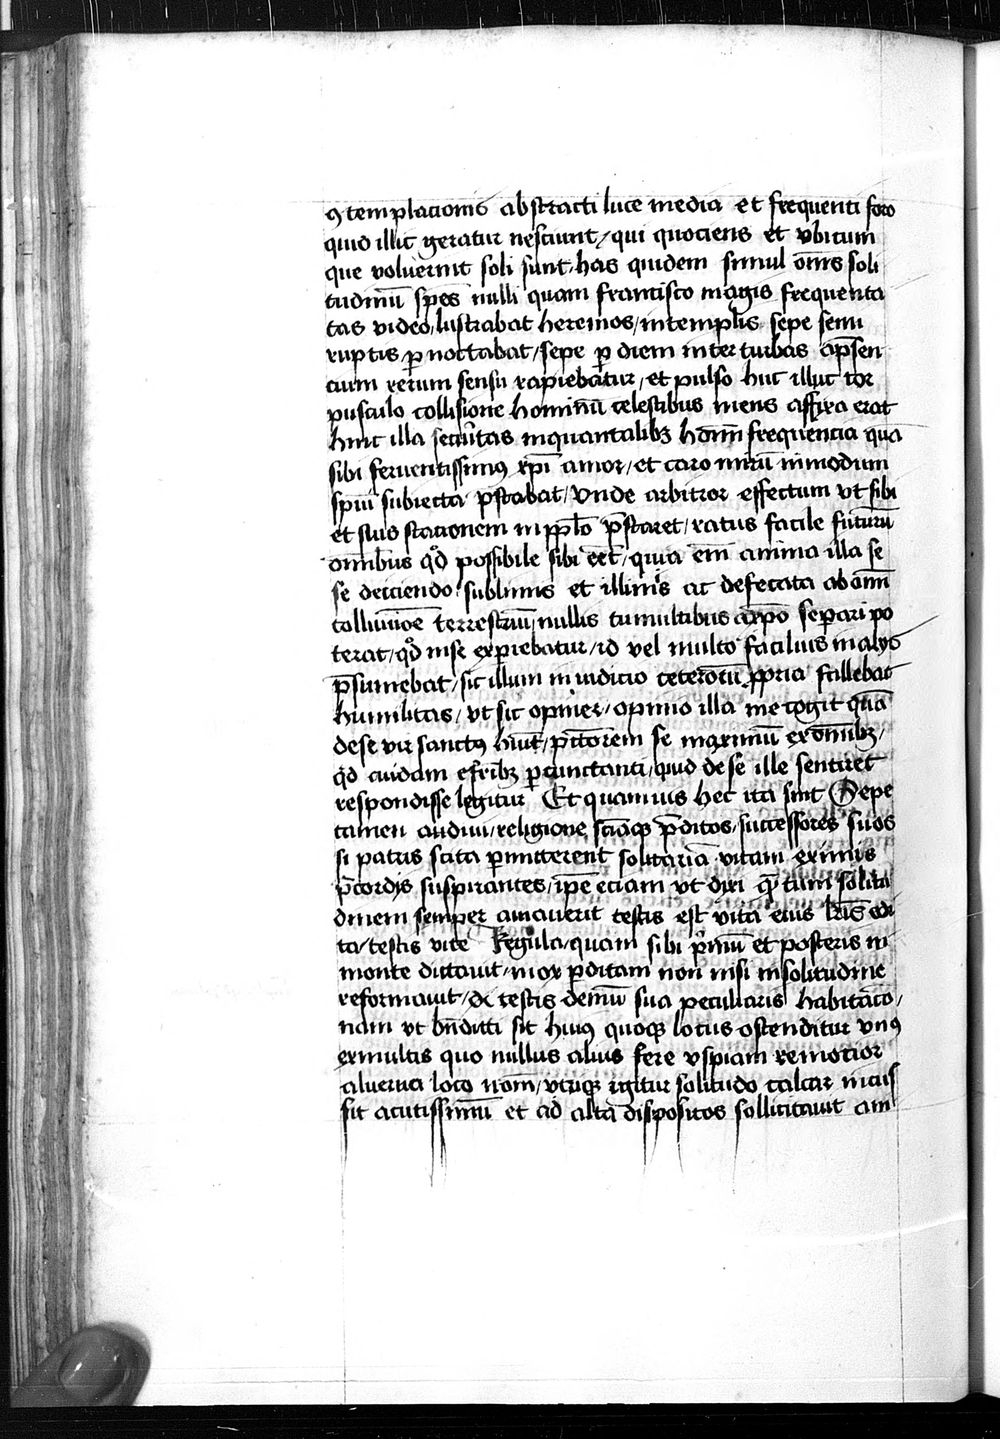 ꝯtemplacionis abstracti luce media et frequenti foro
quid illic geratur nesciunt / qui quociens et vbicum
que voluerint soli sunt / has quidem simul om̄s soli
tudinū sp̄es nulli quam francisco magis frequenta
tas video / lustrabat heremos / in templis sepe semi
ruptis / ꝑnoctabat / sepe ꝑ diem inter turbas apsen
cium rerum sensu rapiebatur / et pulso huc illuc cor
pusculo collisione hominū celestibus mens affixa erat
hinc illa secūitas in quantalibꝫ hōim frequencia quā
sibi feruentissimꝯ xp̄i amor / et caro mirū in modum
sp̄ui subiecta p̄stabat / vnde arbitror effectum vt sibi
et suis stationem in pp̄lo p̄staret / ratus facile futurū
omnibus qd̄ possibile sibi eēt / quia em̄ anima illa se
se deiciendo sublimis et illimis ac defecata ab om̄i
colluuiōe terrestriū / nullis tumultibus a xp̄o seꝑari po
terat / qd̄ in se exꝑiebatur / id vel multo facilius in alijs
p̄sumebat / sic illum in iudicio ceterorū ꝓpria fallebat
humilitas / vt sic opiner / opinio illa me cogit quā
de se vir sanctꝯ hīut / pc̄torem se maximū ex om̄ibꝫ /
qd̄ cuidam e frībꝫ ꝑcunctanti / quid de se ille sentiret
respondisse legitur Et quamuis hec ita sint Sepe
tamen audiui / religione sciāqꝫ p̄ditos / successores suos
si patris scita ꝑmitterent solitariā vitam eximijs
p̄cordijs suspirantes / ip̄e eciam vt dixi qꝫ tum solitu
dinem semper amauerit testis est vita eius lr̄is edi
ta / testis vite Regula / quam sibi p̄mū et posteris in
monte dictauit / mox ꝑditam non nisi in solitudine
reformauit / testis demū sua peculiaris habitaco /
nam vt bn̄dicti sic huiꝯ quoqꝫ locus ostenditur vnꝯ
ex multis quo nullus alius fere vspiam remotior
alueruci loco nom̄ / vtriqꝫ igitur solitudo calcar
sit acutissimū et ad alta dispositos sollicitauit ani